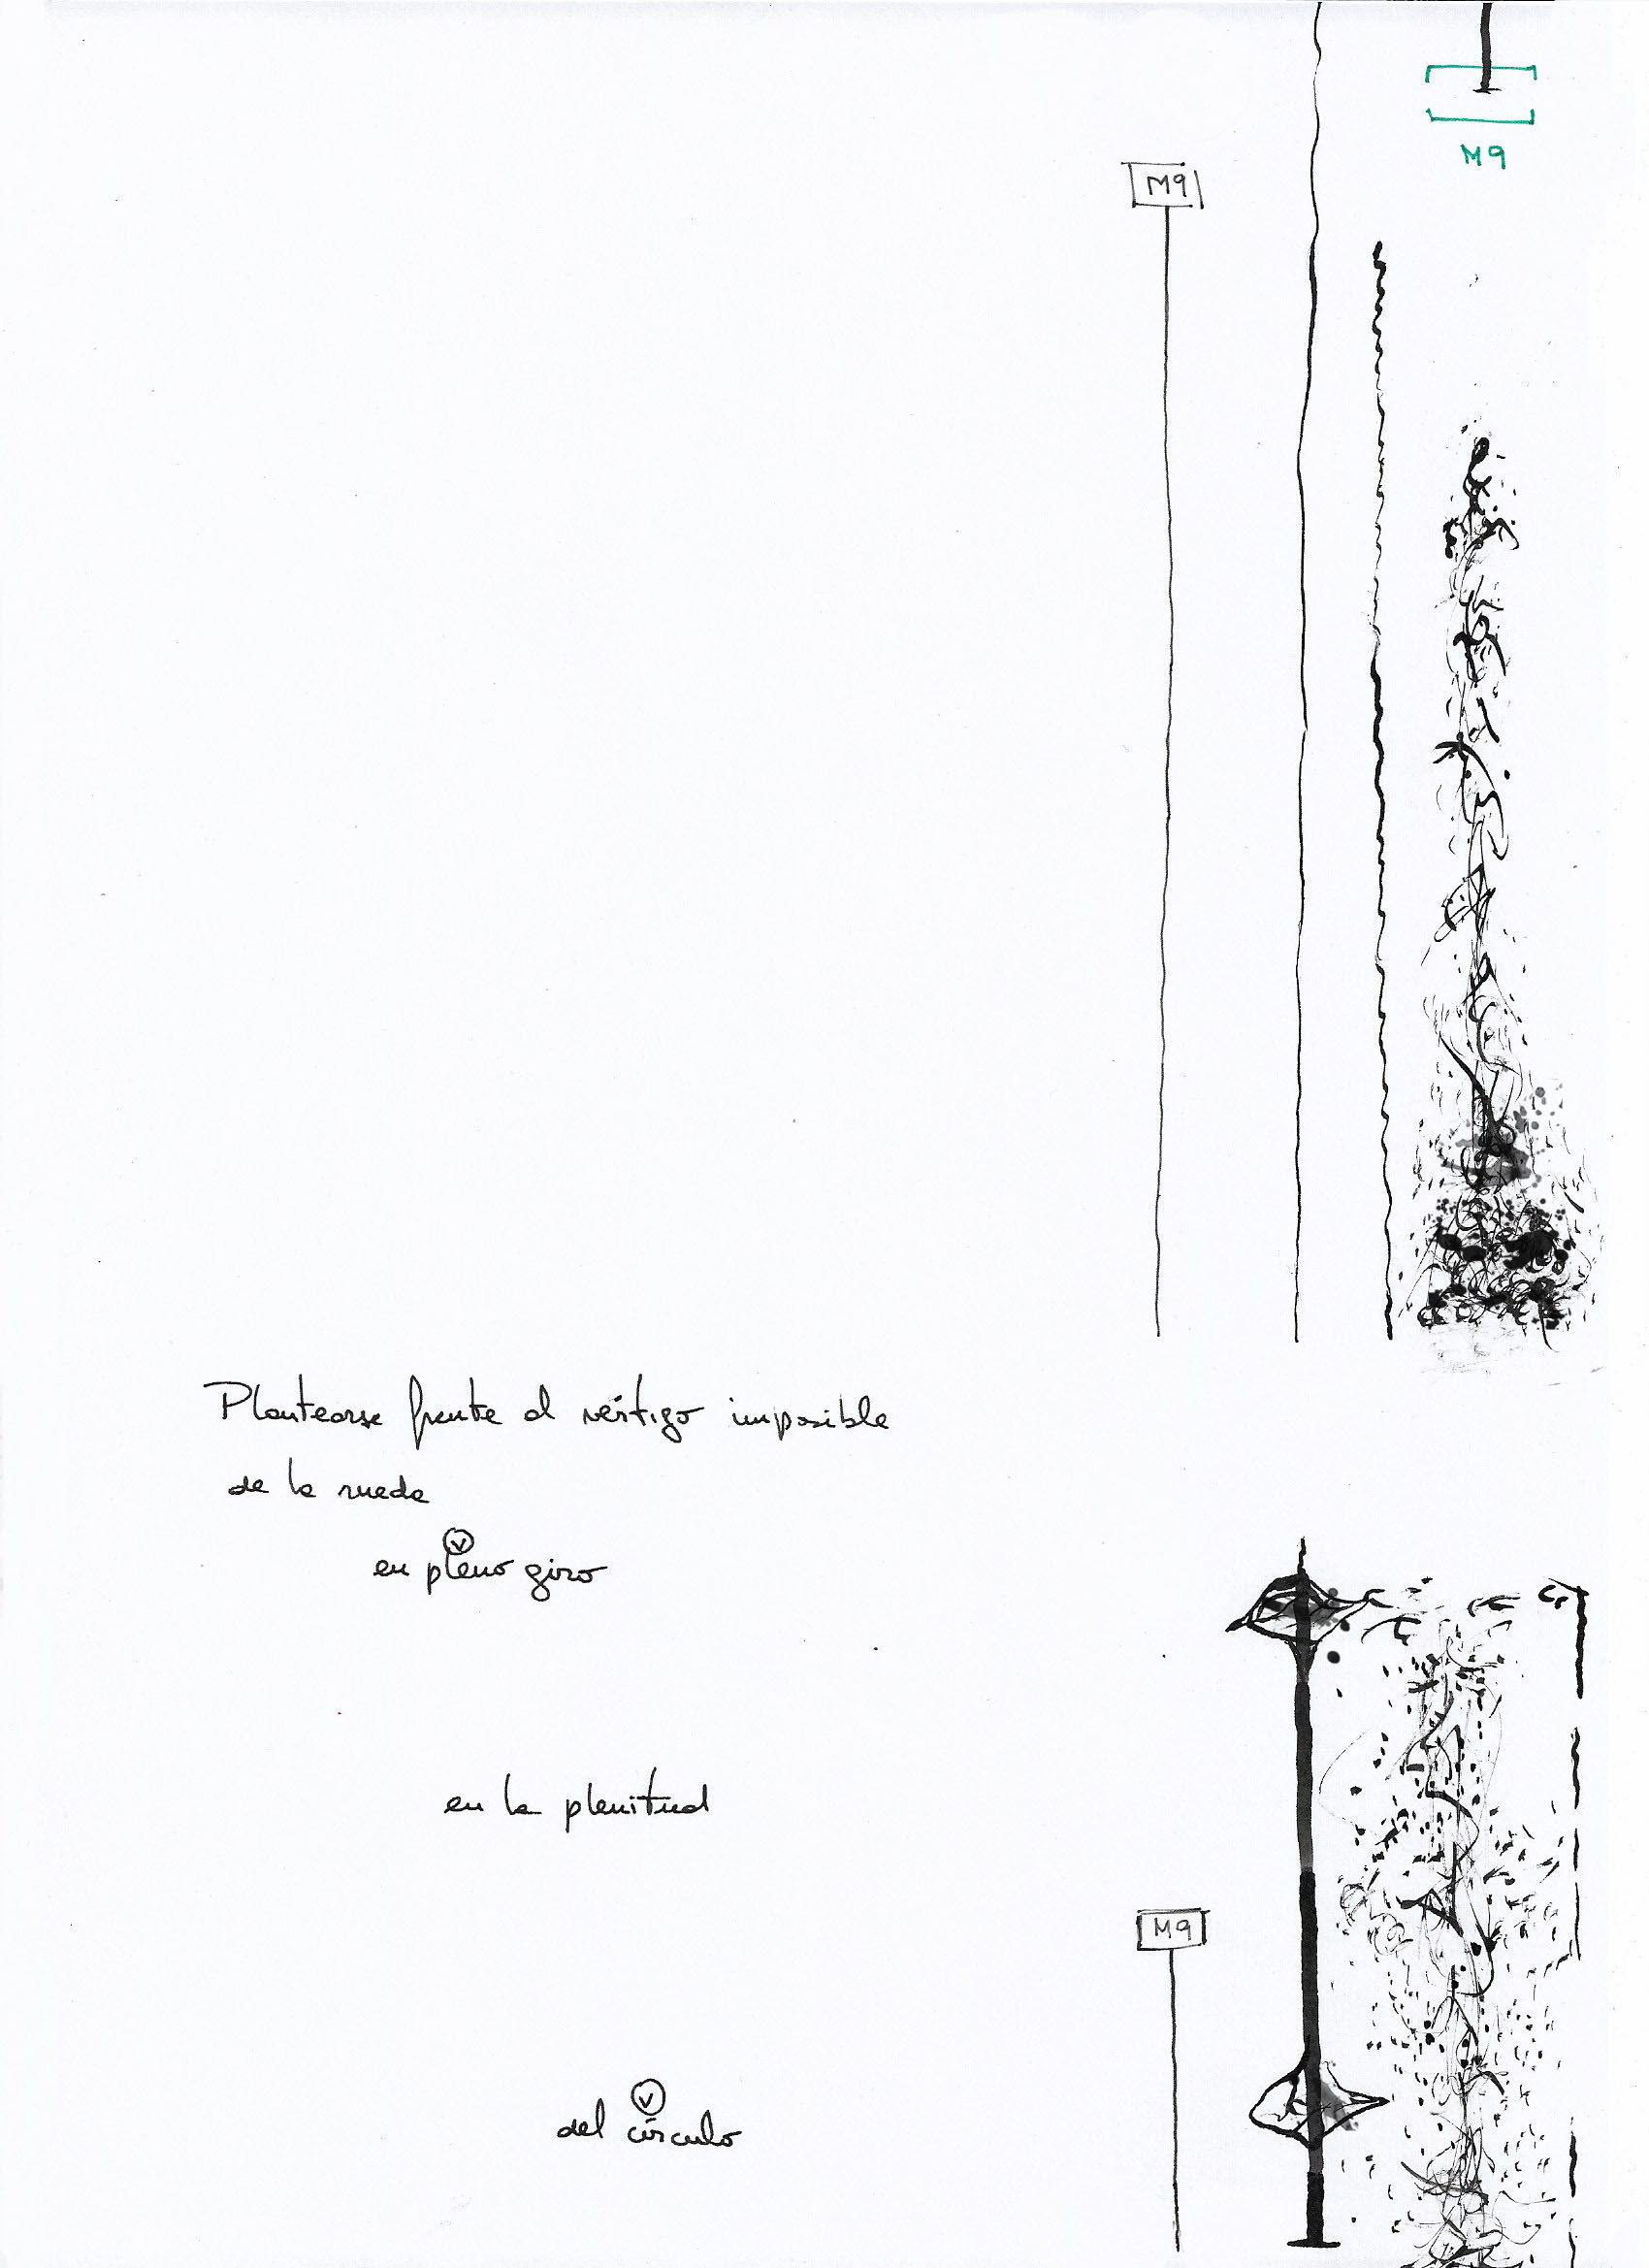 M9
M9
Plantearse frente al vértigo imposible
de la rueda
v
en pleno giro
en la plenitud
M9
v
del círculo